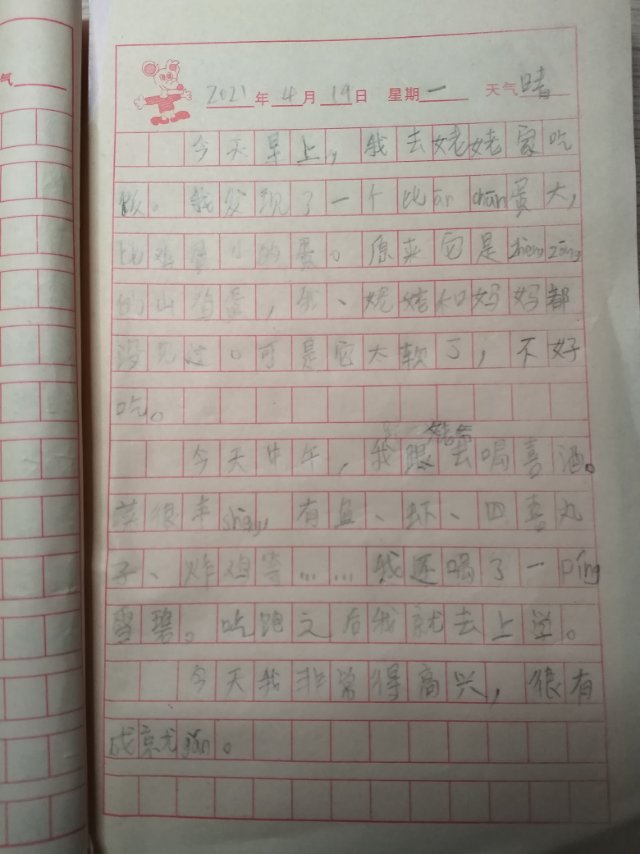 气
2021年4月19日 星期一 天气晴
今天早上，我去姥姥家吃
饭。我发现了一个比ān chún蛋大，
比鸡蛋小的蛋。原来它是zhèng zōng
的山鸡蛋，我、姥姥和妈妈都
没见过。可是它太软了，不好
吃。
今天中午，我跟爷爷去喝喜酒。
菜很丰shèng，有鱼、虾、四喜丸
子、炸鸡等……我还喝了一píng
雪碧。吃跑之后我就去上学。
今天我非常得高兴，很有
成京尤gǎn。